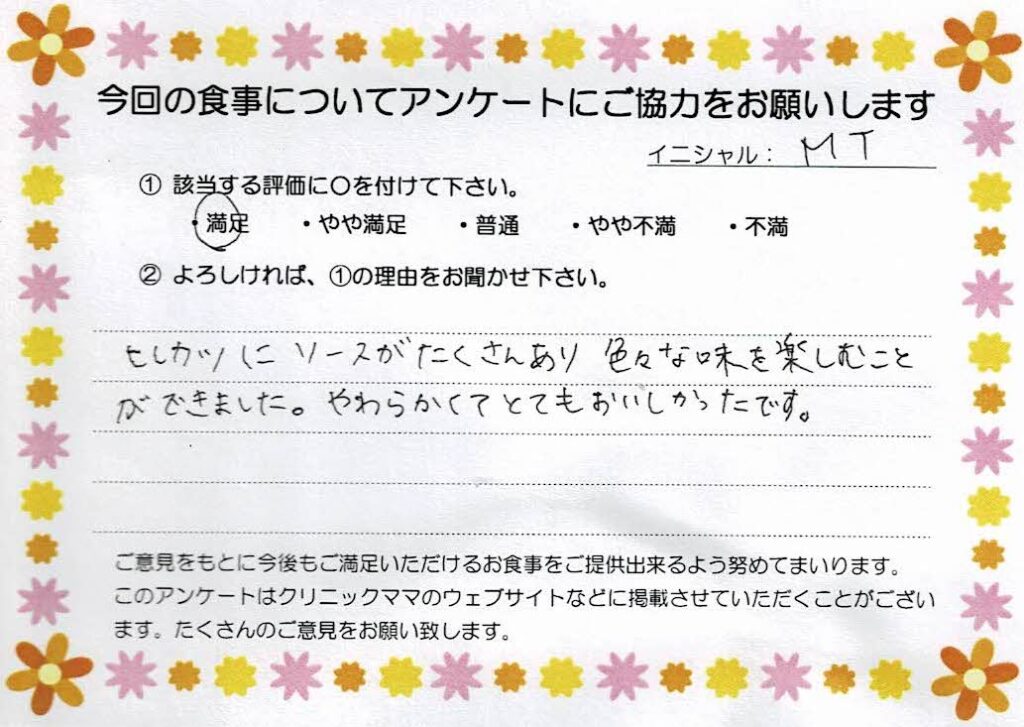 今回の食事についてアンケートにご協力をお願いします
イニシャル： MT
① 該当する評価に〇を付けて下さい。
・満足 ・やや満足 ・普通 ・やや不満 ・不満
② よろしければ、①の理由をお聞かせ下さい。
ヒレカツにソースがたくさんあり 色々な味を楽しむこと
ができました。やわらかくてとてもおいしかったです。
ご意見をもとに今後もご満足いただけるお食事をご提供出来るよう努めてまいります。
このアンケートはクリニックママのウェブサイトなどに掲載させていただくことがござい
ます。たくさんのご意見をお願い致します。